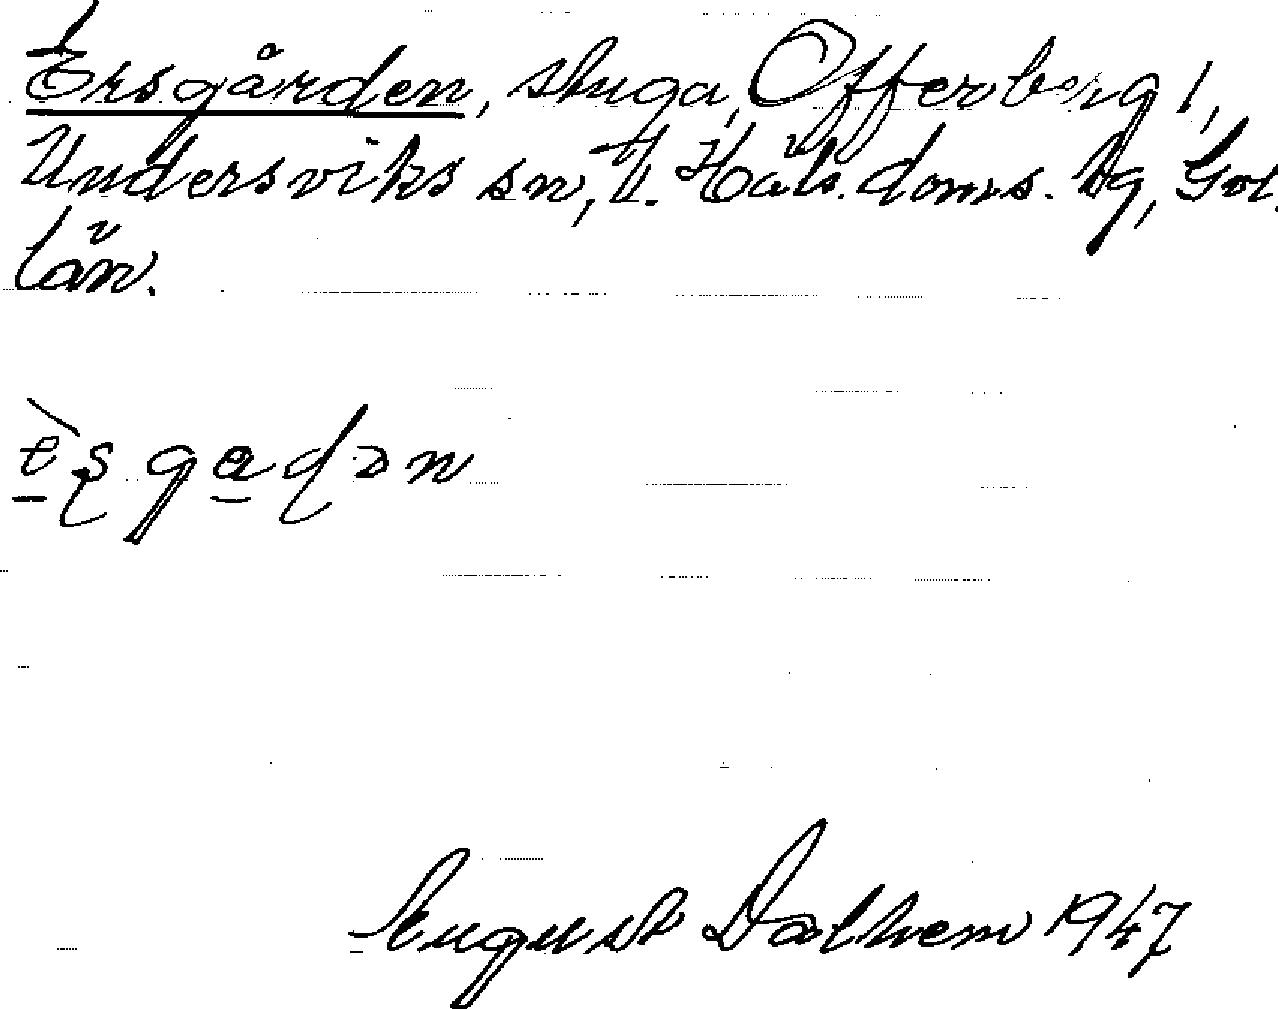 Ersgården, stuga, Offerberg 1,
Undersviks sn, V. Häls. doms. tg, Gvl.
län.
è̠ʂga̠ɖən
August Dalhem 1947